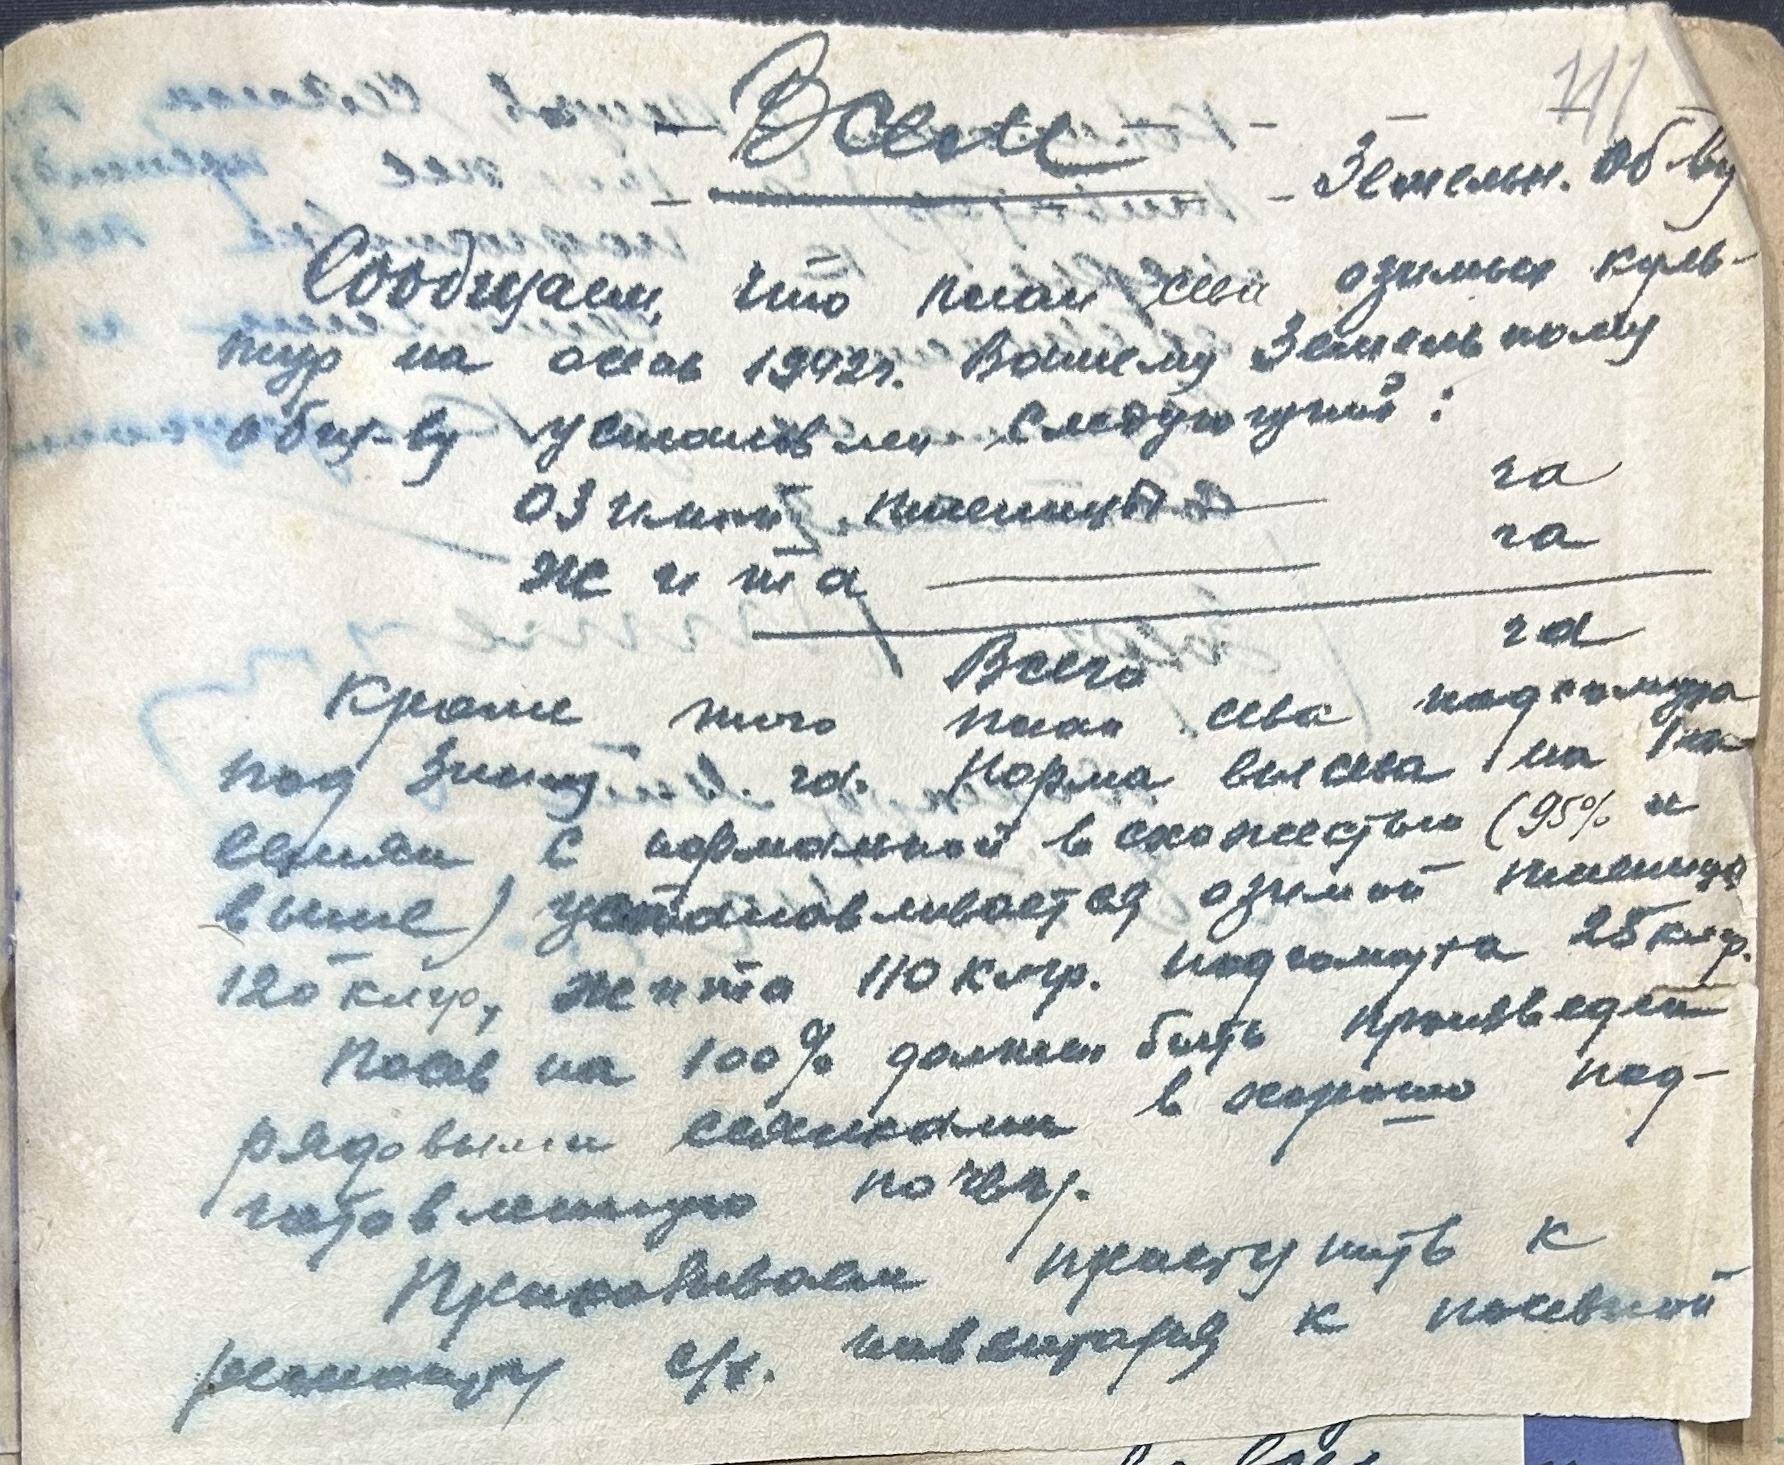 Всем
Земельн. об-ву
Сообщаем, что план сева озимых куль-
тур на осень 1942г. Вашему Земельному
общ-ву установлен следующий:
озимой пшеницы га
Жита га
Всего га
Кроме того план сева подсолнуха
под Зиму га. Норма высева на 1 га
семян с нормальной всхожестью (95% и
выше) устанавливается озимой пшеницы
120 клгр, жита 110 клгр. подсолнуха 25 клгр.
Посев на 100% должен быть произведен
рядовыми сеялками в хорошо под-
готовленную почву.
Приказываем приступить к
ремонту с/х. инвентаря к посевной